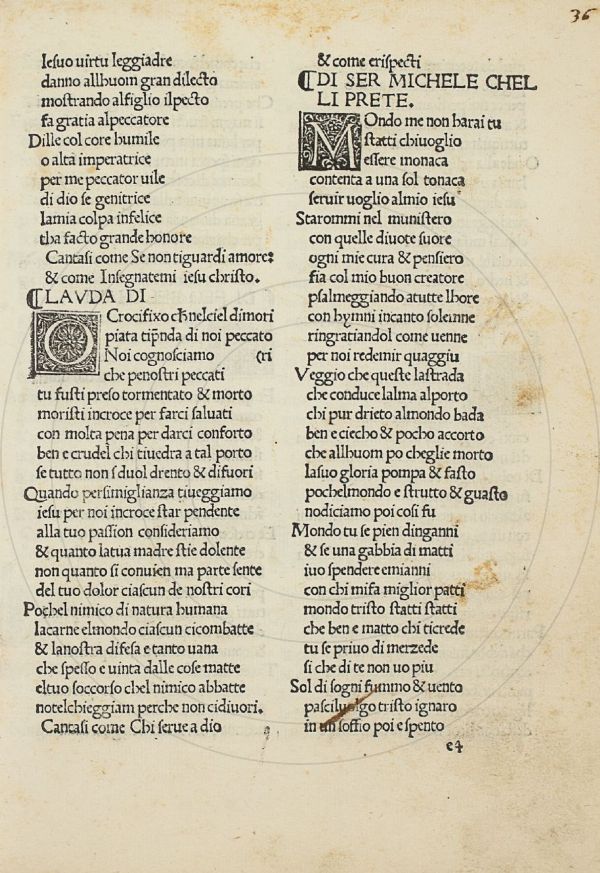 36
Iesuo uirtu leggiadre
danno allhuom gran dilecto
mostrando alfiglio ilpecto
fa gratia alpeccatore
Dille col core humile
o alta imperatrice
per me peccator uile
di dio se genitrice
lamia colpa infelice
tha facto grande honore
Cantasi come Se non tiguardi amore:
& come Insegnatemi iesu christo.
CLAVDA DI
O Crocifixo ch̄ nelciel dimori
piata tip̄nda di noi peccato
Noi cognosciamo (ri
che penostri peccati
tu fusti preso tormentato & morto
moristi incroce per farci saluati
con molta pena per darci conforto
ben e crudel chi tiuedra a tal porto
se tutto non s duol drento & difuori
Quando per similglianza tiueggiamo
iesu per noi incroce star pendente
alla tuo passion consideriamo
& quanto latua madre stie dolente
non quanto si conuien ma parte sente
del tuo dolor ciascun de nostri cori
Pochel nimico di natura humana
lacarne elmondo ciascun cicombatte
& lanostra difesa e tanto uana
che spesso e uinta dalle cose matte
eltuo soccorso chel nimico abbatte
notelchieggiam perche non cidiuori.
Cantasi come Chi serue a dio
& come erispecti
CDI SER MICHELE CHEL
LI PRETE.
MOndo me non harai tu
statti chiuoglio
essere monaca
contenta a una sol tonaca
seruir uoglio almio iesu
Starommi nel munistero
con quelle diuote suore
ogni mie cura & pensiero
fia col mio buon creatore
psalmeggiando atutte lhore
con hymni incanto solemne
ringratiandol come uenne
per noi redemir quaggiu
Veggio che queste lastrada
che conduce lalma alporto
chi pur drieto almondo bada
ben e ciecho & pocho accorto
che allhuom po cheglie morto
lasuo gloria pompa & fasto
pochelmondo e strutto & guasto
nodiciamo poi cosi fu
Mondo tu se pien dinganni
& se una gabbia di matti
iuo spendere emianni
con chi mifa miglior patti
mondo tristo statti statti
che ben e matto chi ticrede
tu se priuo di merzede
si che di te non uo piu
Sol di sogni fummo & uento
pasciluolgo tristo ignaro
in un soffio poi e spento
e4